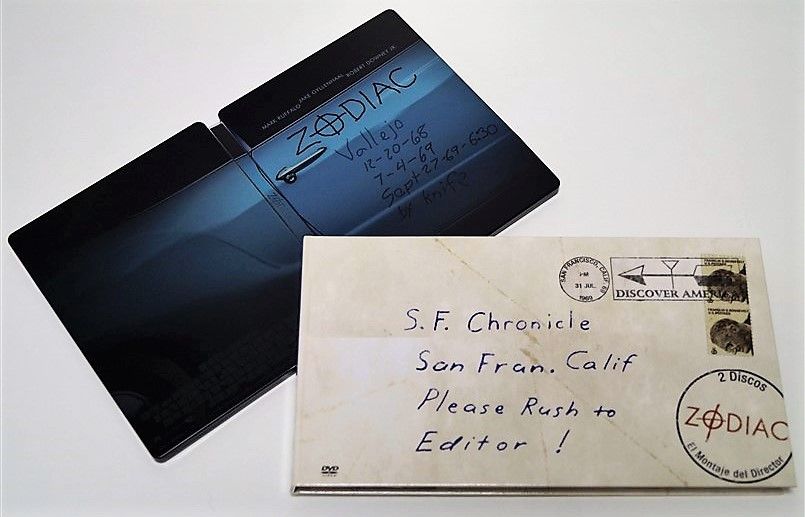 MARK RUFFALO JAKE GYLLENHAAL ROBERT DOWNEY JR.
ZODIAC
Vallejo
12-20-68
7-4-69
Sept 27-69-6:30
by knife
SAN FRANCISCO, CALIF
PM
31 JUL
1969
DISCOVER AMERICA
S.F. Chronicle
San Fran. Calif
Please Rush to
Editor !
2 Discos
ZODIAC
El Montaje del Director
DVD